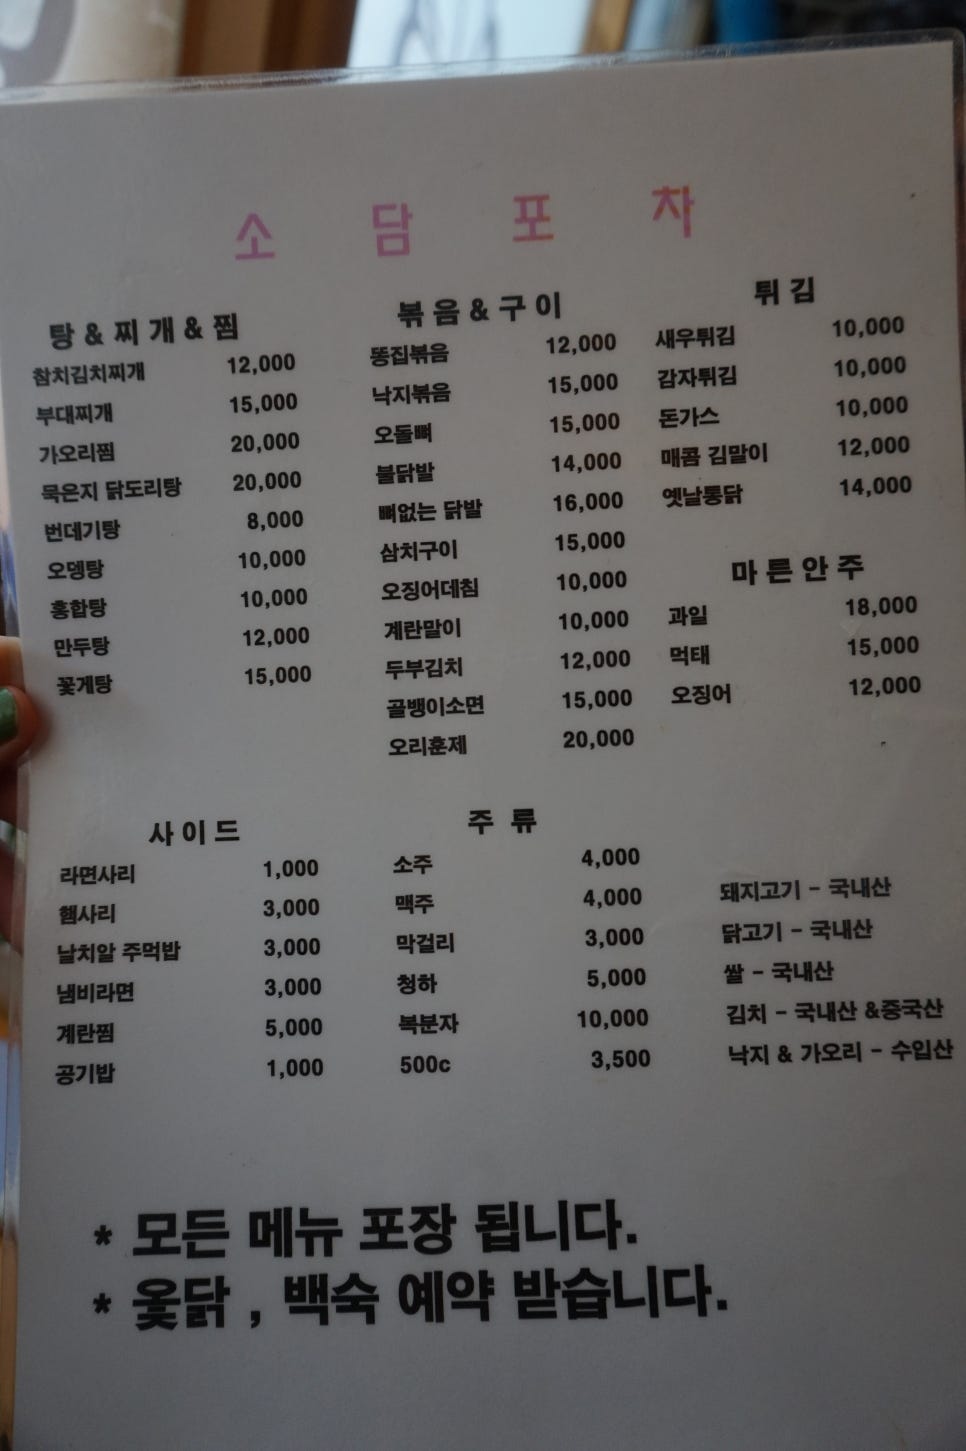 소 담 포 차
탕 & 찌 개 & 찜
참치김치찌개 12,000
부대찌개 15,000
가오리찜 20,000
묵은지 닭도리탕 20,000
번데기탕 8,000
오뎅탕 10,000
홍합탕 10,000
만두탕 12,000
꽃게탕 15,000
볶 음 & 구 이
똥집볶음 12,000
낙지볶음 15,000
오돌뼈 15,000
불닭발 14,000
뼈없는 닭발 16,000
삼치구이 15,000
오징어데침 10,000
계란말이 10,000
두부김치 12,000
골뱅이소면 15,000
오리훈제 20,000
튀 김
새우튀김 10,000
감자튀김 10,000
돈가스 10,000
매콤 김말이 12,000
옛날통닭 14,000
마 른 안 주
과일 18,000
먹태 15,000
오징어 12,000
사 이 드
라면사리 1,000
햄사리 3,000
날치알 주먹밥 3,000
냄비라면 3,000
계란찜 5,000
공기밥 1,000
주 류
소주 4,000
맥주 4,000
막걸리 3,000
청하 5,000
복분자 10,000
500c 3,500
돼지고기 - 국내산
닭고기 - 국내산
쌀 - 국내산
김치 - 국내산 &중국산
낙지 & 가오리 - 수입산
* 모든 메뉴 포장 됩니다.
* 옻닭 , 백숙 예약 받습니다.